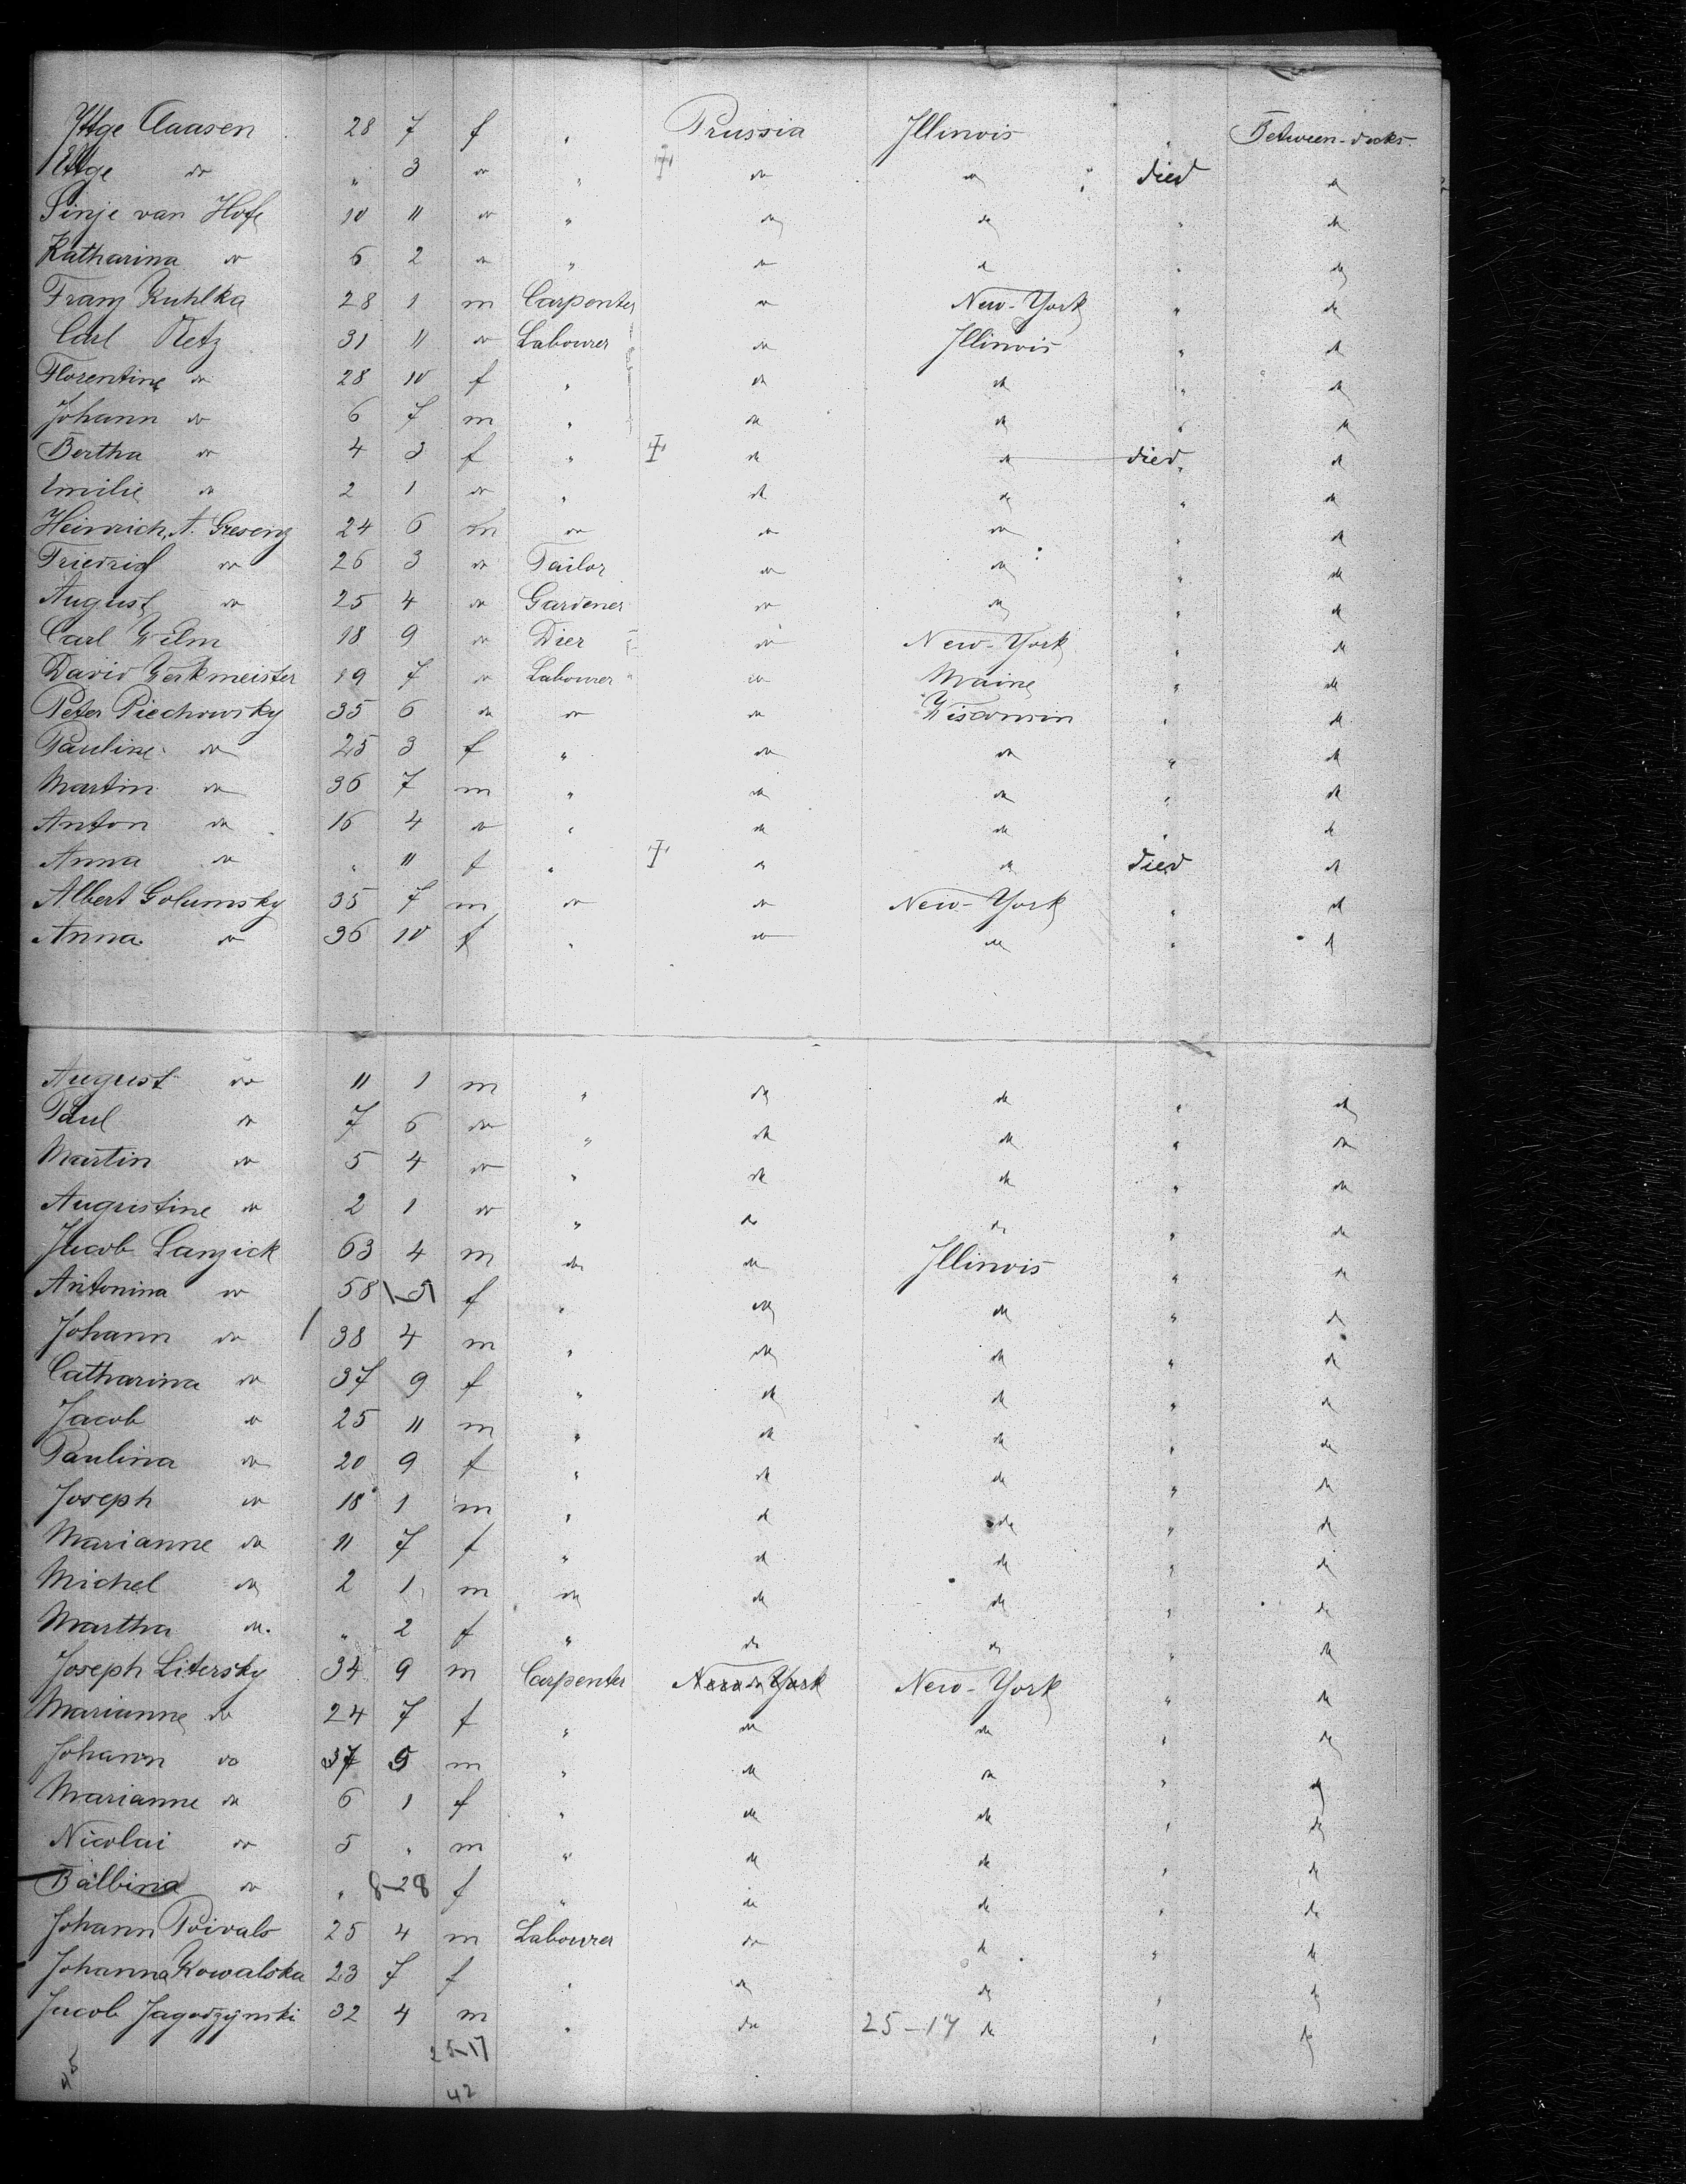 Yttge Claasen 28 7 f " Prussia Illinois " Between-decks.
Ettge do " 3 do " do do died do
Sinje van Hofe 10 11 do " do do " do
Katharina do 6 2 do " do do " do
Franz Kuhlka 28 1 m Carpenter do New-York " do
Carl Retz 31 11 do Labourer do Illinois " do
Florentine do 28 10 f " do do " do
Johann do 6 7 m " do do " do
Bertha do 4 3 f " do do died " do
Emilie do 2 1 do " do do " do
Heinrich A. Greseng 24 6 m do do do " do
Friedrich do 26 3 do Tailor do do " do
August do 25 4 do Gardener do do " do
Carl Wilm 18 9 do Dier do New-York " do
David Werkmeister 19 7 do Labourer do Maine " do
Peter Piechowsky 35 6 do do do Wisconsin " do
Pauline do 25 3 f " do do " do
Martin do 36 7 m " do do " do
Anton do 16 4 do " do do " do
Anna do " 11 f " do do died do
Albert Golumsky 35 7 m do do New-York " do
Anna do 36 10 f " do do " do
August do 11 1 m " do do " do
Paul do 7 6 do " do do " do
Martin do 5 4 do " do do " do
Augustine do 2 1 do " do do " do
Jacob Lanzick 63 4 m do do Illinois " do
Antonina do 58 5 f " do do " do
Johann do 38 4 m " do do " do
Catharina do 37 9 f " do do " do
Jacob do 25 11 m " do do " do
Paulina do 20 9 f " do do " do
Joseph do 18 1 m " do do " do
Marianne do 11 7 f " do do " do
Michel do 2 1 m do do do " do
Martha do. " 2 f " do do " do
Joseph Litersky 34 9 m Carpenter New-York do New-York " do
Marianne do 24 7 f " do do " do
Johann do 37 5 m " do do " do
Marianne do 6 1 f " do do " do
Nicolai do 5 " m " do do " do
Balbina do " 8-28 f " do do " do
Johann Poivals 25 4 m Labourer do do " do
Johanna Kowalska 23 7 f " do do " do
Jacob Jagodzynski 32 4 m " do 25-17 do " do
25-17
42
45